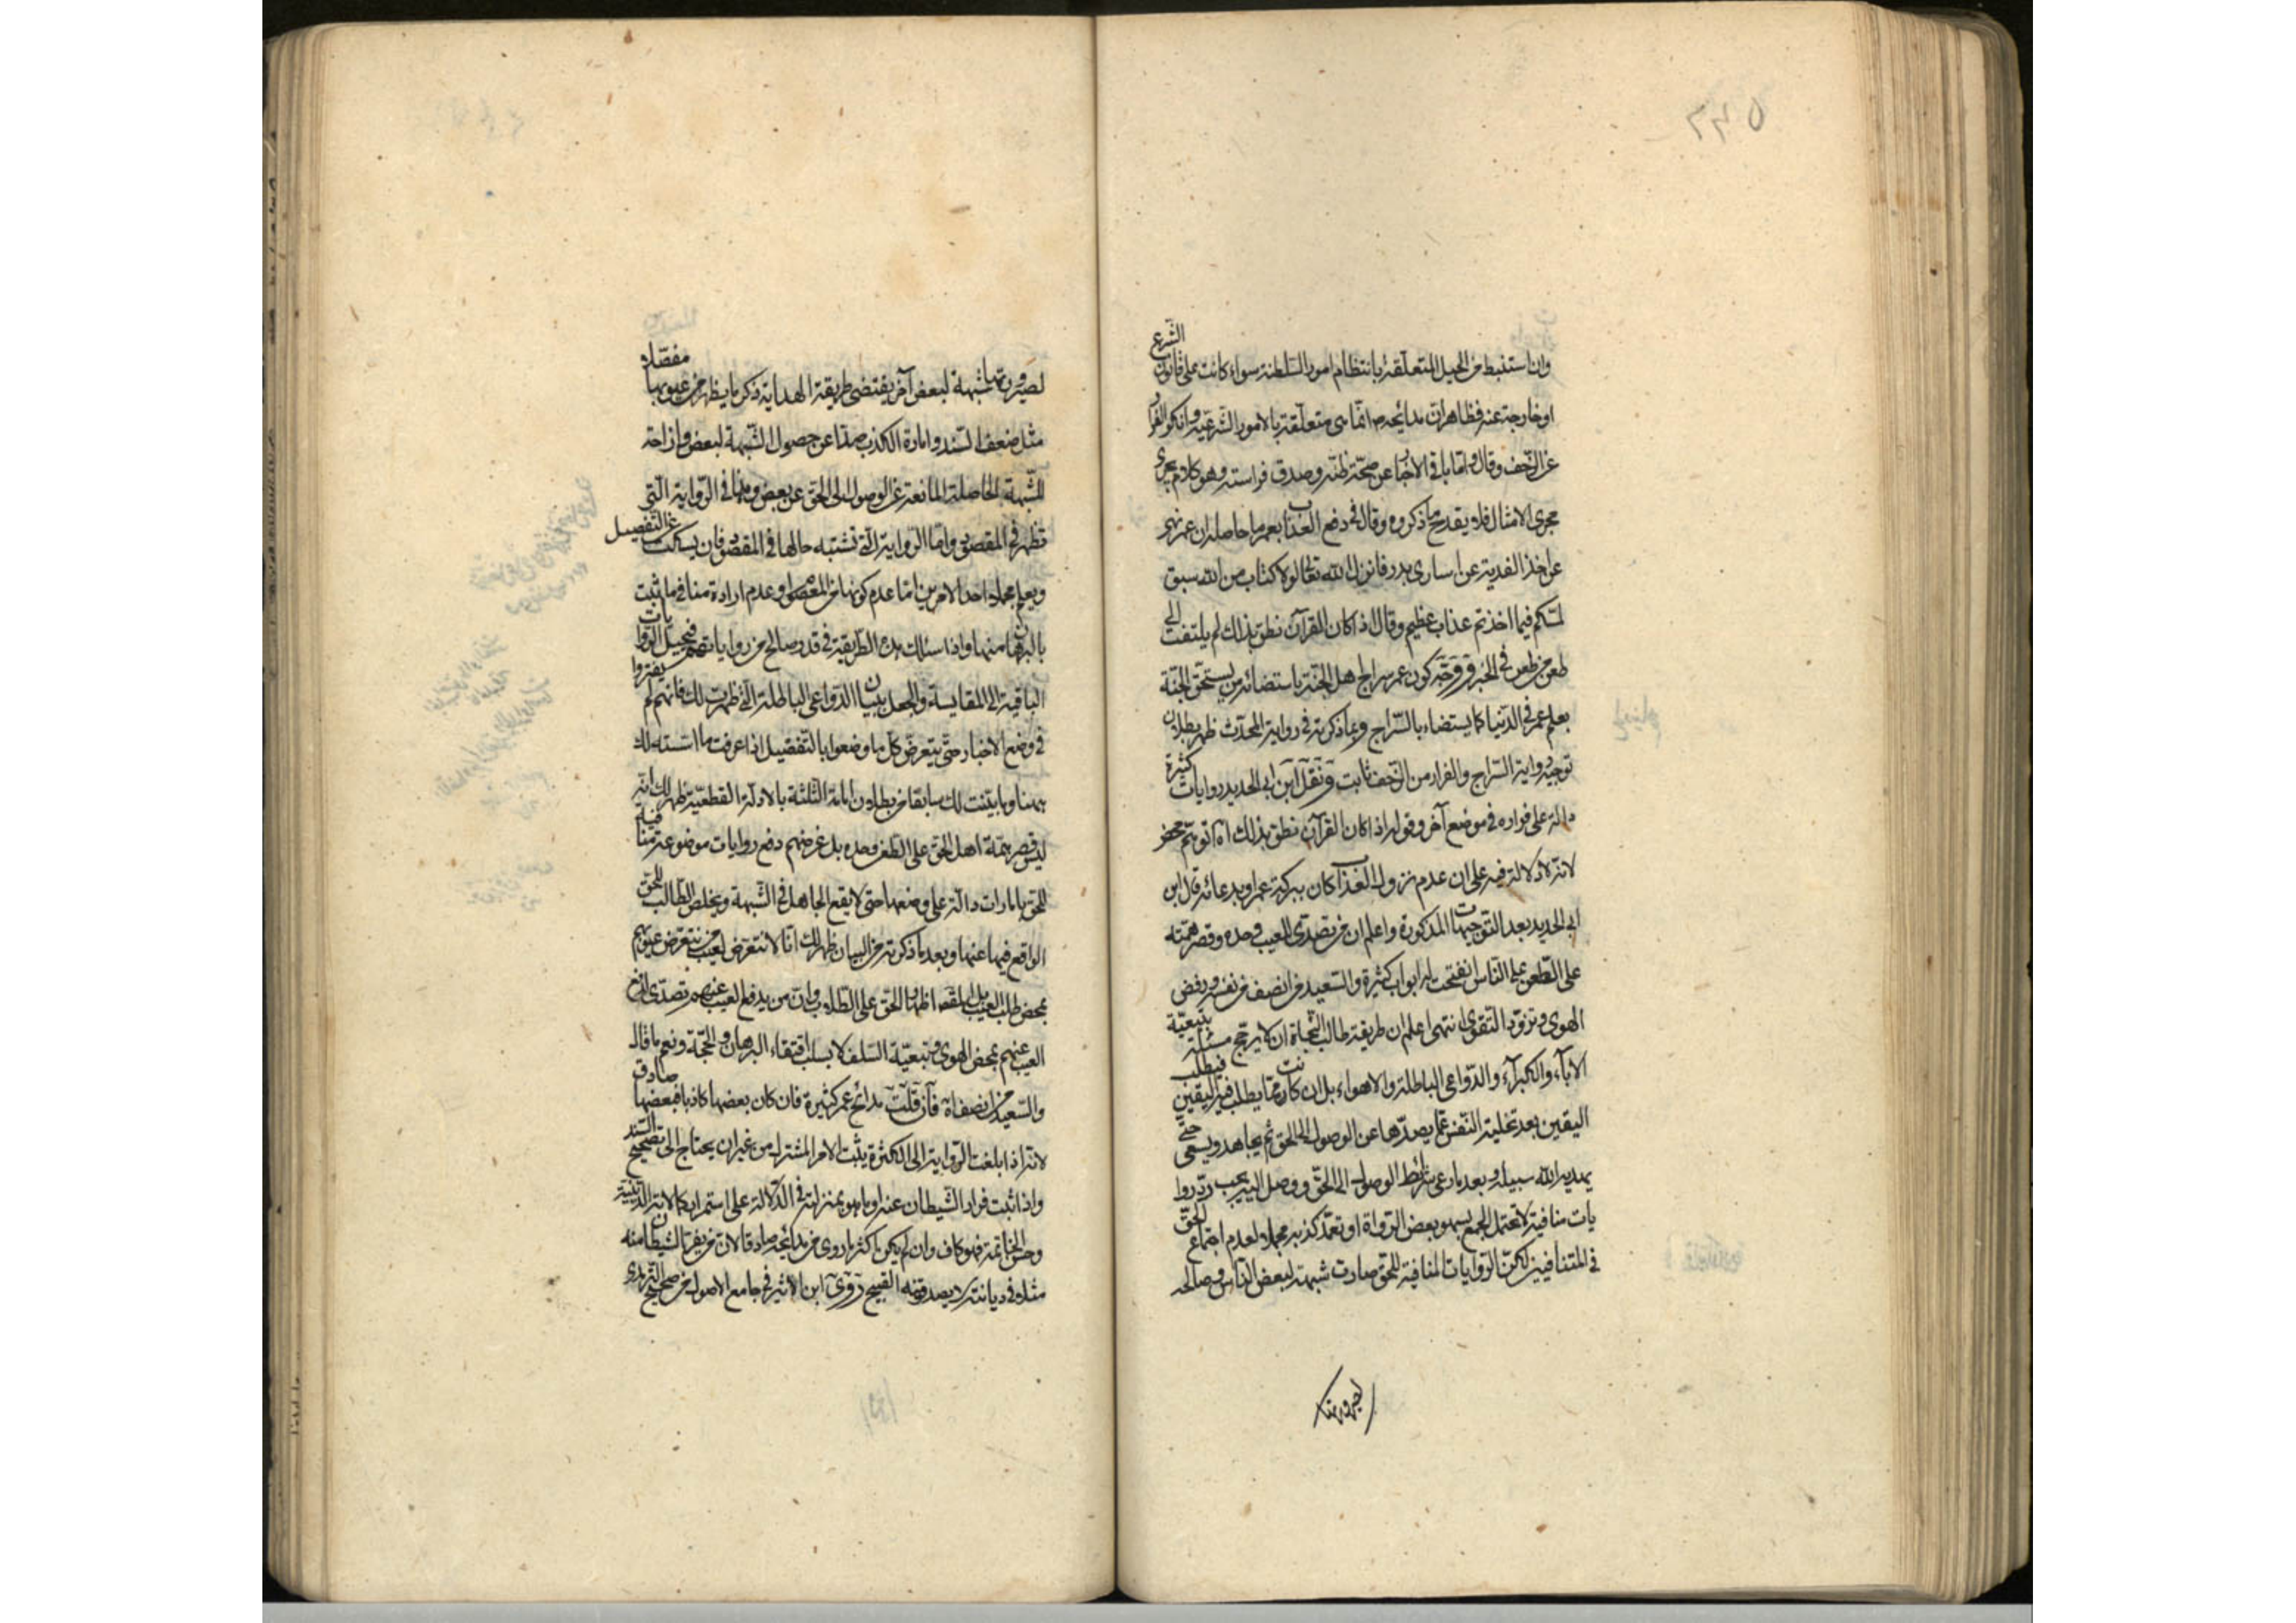 وان استنبط من الحيل المتعلقة بانتظام امور السلطنة سواء كانت على قانون الشرع
او خارجة عنه فظاهر ان مدائحه انما هى متعلقة بالامور الشرعية وانكر الفرار
عن الزحف وقال واما باقى الاخبار عن صحة ظنه وصدق فراسته وهو كلام يجرى
مجرى الامثال فلا يقدح ما ذكروه وقال فى دفع العذاب بعمر ما حاصله ان عمر نهى
عن اخذ الفدية عن اسارى بدر فانزل الله تعالى لولا كتاب من الله سبق
لمسكم فيما اخذتم عذاب عظيم وقال اذا كان القرآن نطق بذلك لم يلتفت الى
طعن من طعن فى الخبر ووجه كون عمر سراج اهل الجنة باستضائة من يستحق الجنة
بعلم عمر فى الدنيا كما يستضاء بالسراج وبما ذكرته فى رواية المحدث ظهر بطلان
توجيه رواية السراج والفرار من الزحف ثابت ونقل ابن ابى الحديد روايات كثيرة
دالة على فراره فى موضع آخر وقوله اذا كان القرآن نطق بذلك اه توهم محض
لانه لا دلالة فيه على ان عدم نزول العذاب كان ببركة عمر او بدعائه قال ابن
ابى الحديد بعد التوجيهات المذكورة واعلم ان من تصدى للعيب وحده وقصر همته
على الطعن على الناس انفتحت له ابواب كثيرة والسعيد من انصف من نفسه ورفض
الهوى وتزود التقوى انتهى اعلم ان طريقة طالب النجاة ان لا يرجح بتبعية
الآباء والكبرآء والدواعى الباطلة والاهواء بل ان كانت مما يطلب فيه اليقين فيطلب
اليقين بعد تخلية النفس عما يصدها عن الوصول الى الحق ثم يجاهد ويسعى حتى
يهديه الله سبيله وبعد ما رعى شرائط الوصول الى الحق ووصل اليه يجب رد روا
يات منافية لا تحتمل الجمع بسهو بعض الرواة او تعمد كذبه مجملا لعدم اجتماع الحق
فى المتنافيين لكن الروايات المنافية للحق صارت شبهة لبعض الناس وصالحه
لصيرورتها شبهة لبعض آخر يقتضى طريقة الهداية ذكر ما يظهر من عيوبها مفصلا
مثل ضعف السند وامارة الكذب صدا عن حصول الشبهة لبعض وازاحة
للشبهة الحاصلة المانعة عن الوصول الى الحق عن بعض وهذا فى الرواية التى
تظهر فى المقصود واما الرواية التى تشتبه حالها فى المقصود فان يسكت عن التفصيل
ويعلم مجملا احد الامرين اما عدم كونها من المعصوم او عدم ارادة منافى ما ثبت
بالبرهان منها واذا سئلك بهذه الطريقة فى قدر صالح من رواياتهم فنحيل الروايات
الباقية الى المقايسة والجعل ببيان الدواعى الباطلة التى ظهرت لك فانهم لم يفتروا
فى وضع الاخبار حتى يتعرض كل ما وضعوا بالتفصيل اذا عرفت ما اسسته لك
ههنا وما بينت لك سابقا من بطلان امامة الثلثة بالادلة القطعية ظهر لك انه
ليس قصر همة اهل الحق على الطعن وحده بل غرضهم دفع روايات موضوعة منافية
للحق بامارات دالة على وضعها حتى لا يقع الجاهل فى الشبهة ويخلص الطالب للحق
الواقع فيها عنها وبعد ما ذكرته من البيان ظهر لك انا لا نتعرض لعيب من نتعرض عيوبهم
بمحض طلب العيب بل لقصد اظهار الحق على الطلاب وان من يدفع العيب عنهم تصدى لدفع
العيب عنهم بمحض الهوى وتبعية السلف لا بسلب اقتفاء البرهان والحجة ونعم ما قال
والسعيد من انصف اه فان قلت مدائح عمر كثيرة فان كان بعضها كاذبا فبعضها صادق
لانه اذا بلغت الرواية الى الكثرة يثبت الامر المشترك من غير ان يحتاج الى تصحيح السند
واذا ثبت فرار الشيطان عنه او ما هو بمنزلته فى الدلالة على استمرار كمالاته الدينية
وحسن الخاتمة فهو كاف وان لم يكن اكثر ما روى من مدائحه صادقا لان من يفر الشيطان منه
مثله فى ديانته لا يصدر منه القبيح روى ابن الاثير فى جامع الاصول من صحيح الترمذى